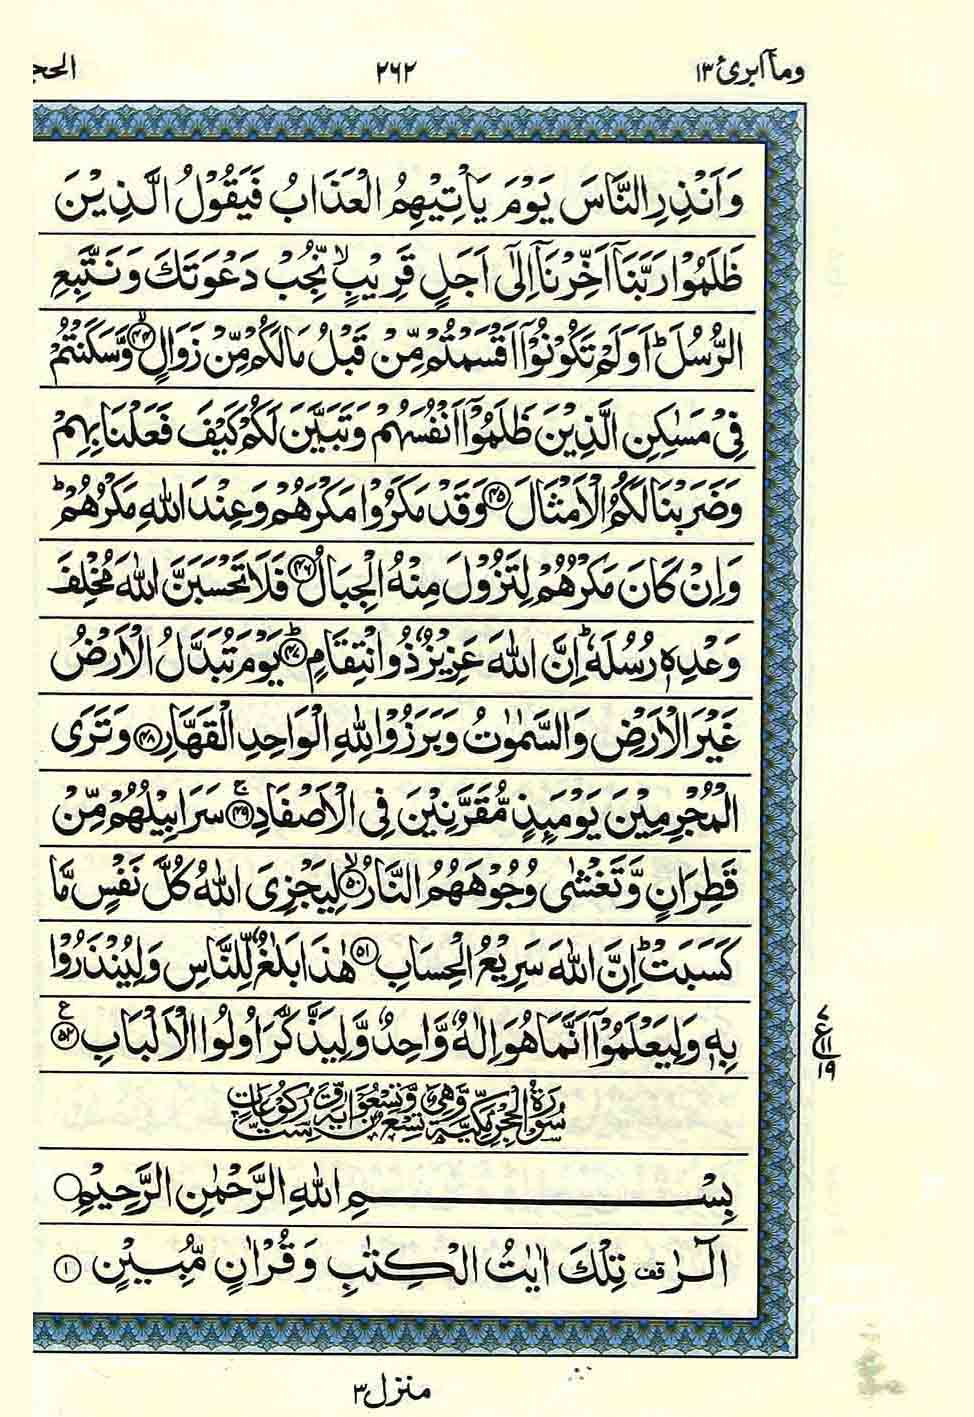 ومآ ابرئ ١٣ ٢٦٢ الحج
وَاَنْذِرِ النَّاسَ يَوْمَ يَاْتِيْهِمُ الْعَذَابُ فَيَقُوْلُ الَّذِيْنَ
ظَلَمُوْا رَبَّنَاۤ اَخِّرْنَاۤ اِلٰۤى اَجَلٍ قَرِيْبٍۙ نُّجِبْ دَعْوَتَكَ وَنَتَّبِعِ
الرُّسُلَؕ اَوَلَمْ تَكُوْنُوْۤا اَقْسَمْتُمْ مِّنْ قَبْلُ مَا لَكُمْ مِّنْ زَوَالٍۙ۴۴ وَّسَكَنْتُمْ
فِیْ مَسٰكِنِ الَّذِيْنَ ظَلَمُوْۤا اَنْفُسَهُمْ وَتَبَيَّنَ لَكُمْ كَيْفَ فَعَلْنَا بِهِمْ
وَضَرَبْنَا لَكُمُ الْاَمْثَالَ۴۵ وَقَدْ مَكَرُوْا مَكْرَهُمْ وَعِنْدَ اللّٰهِ مَكْرُهُمْؕ
وَاِنْ كَانَ مَكْرُهُمْ لِتَزُوْلَ مِنْهُ الْجِبَالُ۴۶ فَلَا تَحْسَبَنَّ اللّٰهَ مُخْلِفَ
وَعْدِهٖ رُسُلَهٗؕ اِنَّ اللّٰهَ عَزِيْزٌ ذُو انْتِقَامٍؕ۴۷ يَوْمَ تُبَدَّلُ الْاَرْضُ
غَيْرَ الْاَرْضِ وَالسَّمٰوٰتُ وَبَرَزُوْا لِلّٰهِ الْوَاحِدِ الْقَهَّارِ۴۸ وَتَرَى
الْمُجْرِمِيْنَ يَوْمَىِٕذٍ مُّقَرَّنِيْنَ فِی الْاَصْفَادِۚ۴۹ سَرَابِيْلُهُمْ مِّنْ
قَطِرَانٍ وَّتَغْشٰى وُجُوْهَهُمُ النَّارُۙ۵۰ لِيَجْزِیَ اللّٰهُ كُلَّ نَفْسٍ مَّا
كَسَبَتْؕ اِنَّ اللّٰهَ سَرِيْعُ الْحِسَابِ۵۱ هٰذَا بَلٰغٌ لِّلنَّاسِ وَلِيُنْذَرُوْا
بِهٖ وَلِيَعْلَمُوْۤا اَنَّمَا هُوَ اِلٰهٌ وَّاحِدٌ وَّلِيَذَّكَّرَ اُولُوا الْاَلْبَابِ۵۲ع
٧ ع ١١ ١٩
سُوْرَةُ الْحِجْرِ مَكِّيَّةٌ وَّهِیَ تِسْعٌ وَّتِسْعُوْنَ اٰيَةً وَّسِتُّ رُكُوْعَاتٍ
بِسْمِ اللّٰهِ الرَّحْمٰنِ الرَّحِيْمِ
الٓرٰ قف تِلْكَ اٰيٰتُ الْكِتٰبِ وَقُرْاٰنٍ مُّبِيْنٍ۱
منزل ٣